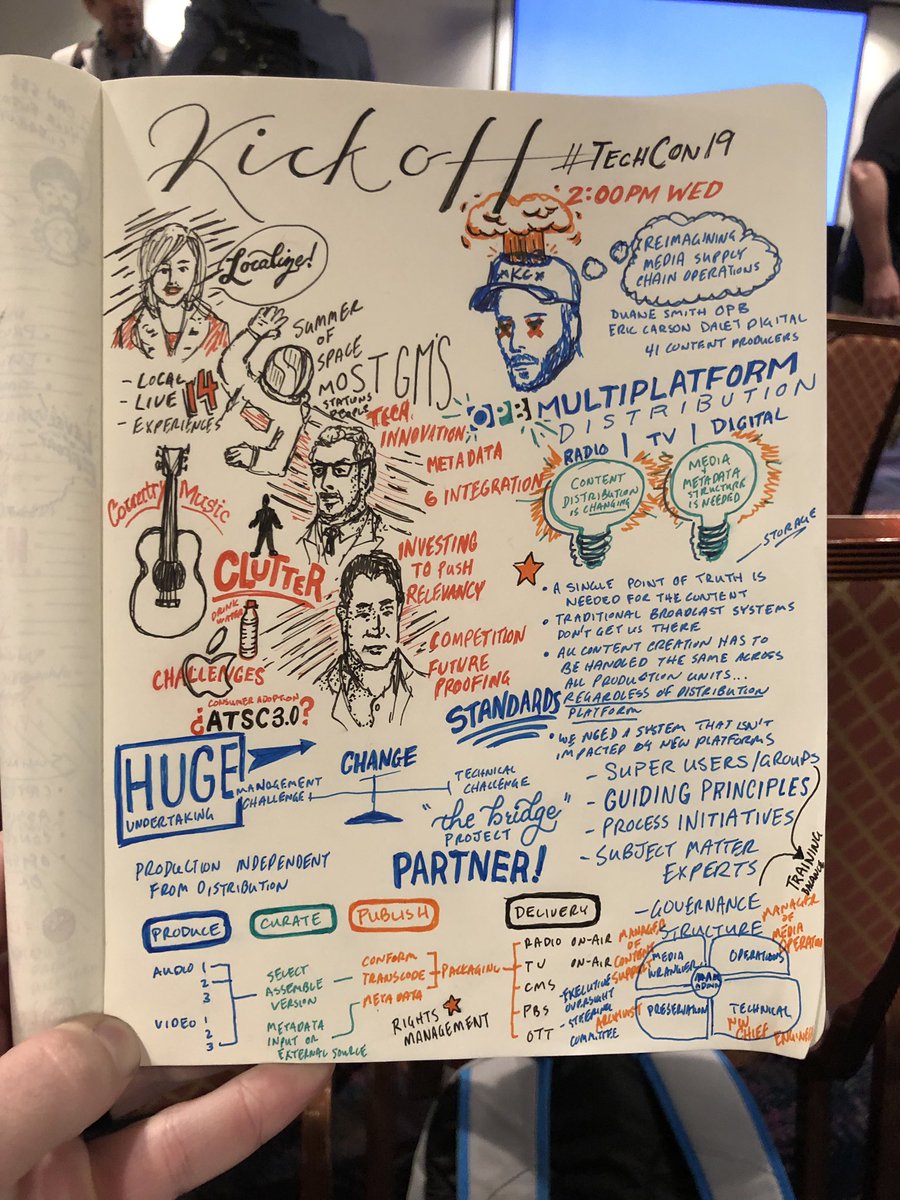 Kick off
#TECHCON19
2:00PM WED
Localize!
- LOCAL
- LIVE 14
- EXPERIENCES
SUMMER
OF
SPACE
MOST GM'S
STATIONS
PEOPLE
TECH
INNOVATION
METADATA
6 INTEGRATION
Country Music
CLUTTER
DRINK
WATER
CHALLENGES
INVESTING
TO PUSH
RELEVANCY
COMPETITION
FUTURE
PROOFING
CONSUMER ADOPTION
¿ATSC3.0?
*KC*
REIMAGINING
MEDIA SUPPLY
CHAIN OPERATIONS
DUANE SMITH OPB
ERIC CARSON DALET DIGITAL
41 CONTENT PRODUCERS
OPB MULTIPLATFORM
DISTRIBUTION
RADIO | TV | DIGITAL
CONTENT
DISTRIBUTION
IS CHANGING
MEDIA
+
METADATA
STRUCTURE
IS NEEDED
STORAGE
• A SINGLE POINT OF TRUTH IS
NEEDED FOR THE CONTENT
• TRADITIONAL BROADCAST SYSTEMS
DON'T GET US THERE
• ALL CONTENT CREATION HAS TO
BE HANDLED THE SAME ACROSS
ALL PRODUCTION UNITS...
REGARDLESS OF DISTRIBUTION
PLATFORM
• WE NEED A SYSTEM THAT ISN'T
IMPACTED BY NEW PLATFORMS
STANDARDS
HUGE
UNDERTAKING
MANAGEMENT
CHALLENGE
CHANGE
TECHNICAL
CHALLENGE
"the bridge"
PROJECT
PARTNER!
- SUPER USERS/GROUPS
- GUIDING PRINCIPLES
- PROCESS INITIATIVES
- SUBJECT MATTER
EXPERTS
TRAINING
- GOVERNANCE
STRUCTURE
PRODUCTION INDEPENDENT
FROM DISTRIBUTION
PRODUCE
CURATE
PUBLISH
DELIVERY
AUDIO 1
2
3
VIDEO 1
2
3
SELECT
ASSEMBLE
VERSION
METADATA
INPUT OR
EXTERNAL SOURCE
CONFORM
TRANSCODE
METADATA
PACKAGING
RIGHTS
MANAGEMENT
RADIO ON-AIR
TV ON-AIR
CMS
PBS
OTT
MANAGER
OF
CONTENT
SUPPORT
- EXECUTIVE
OVERSIGHT
- STEERING
COMMITTEE
ARCHIVIST
MEDIA
WRANGLER
OPERATIONS
MANAGER
OF
MEDIA
OPERATION
MAM
ADMIN
PRESERVATION
TECHNICAL
NW
CHIEF ENGINEER